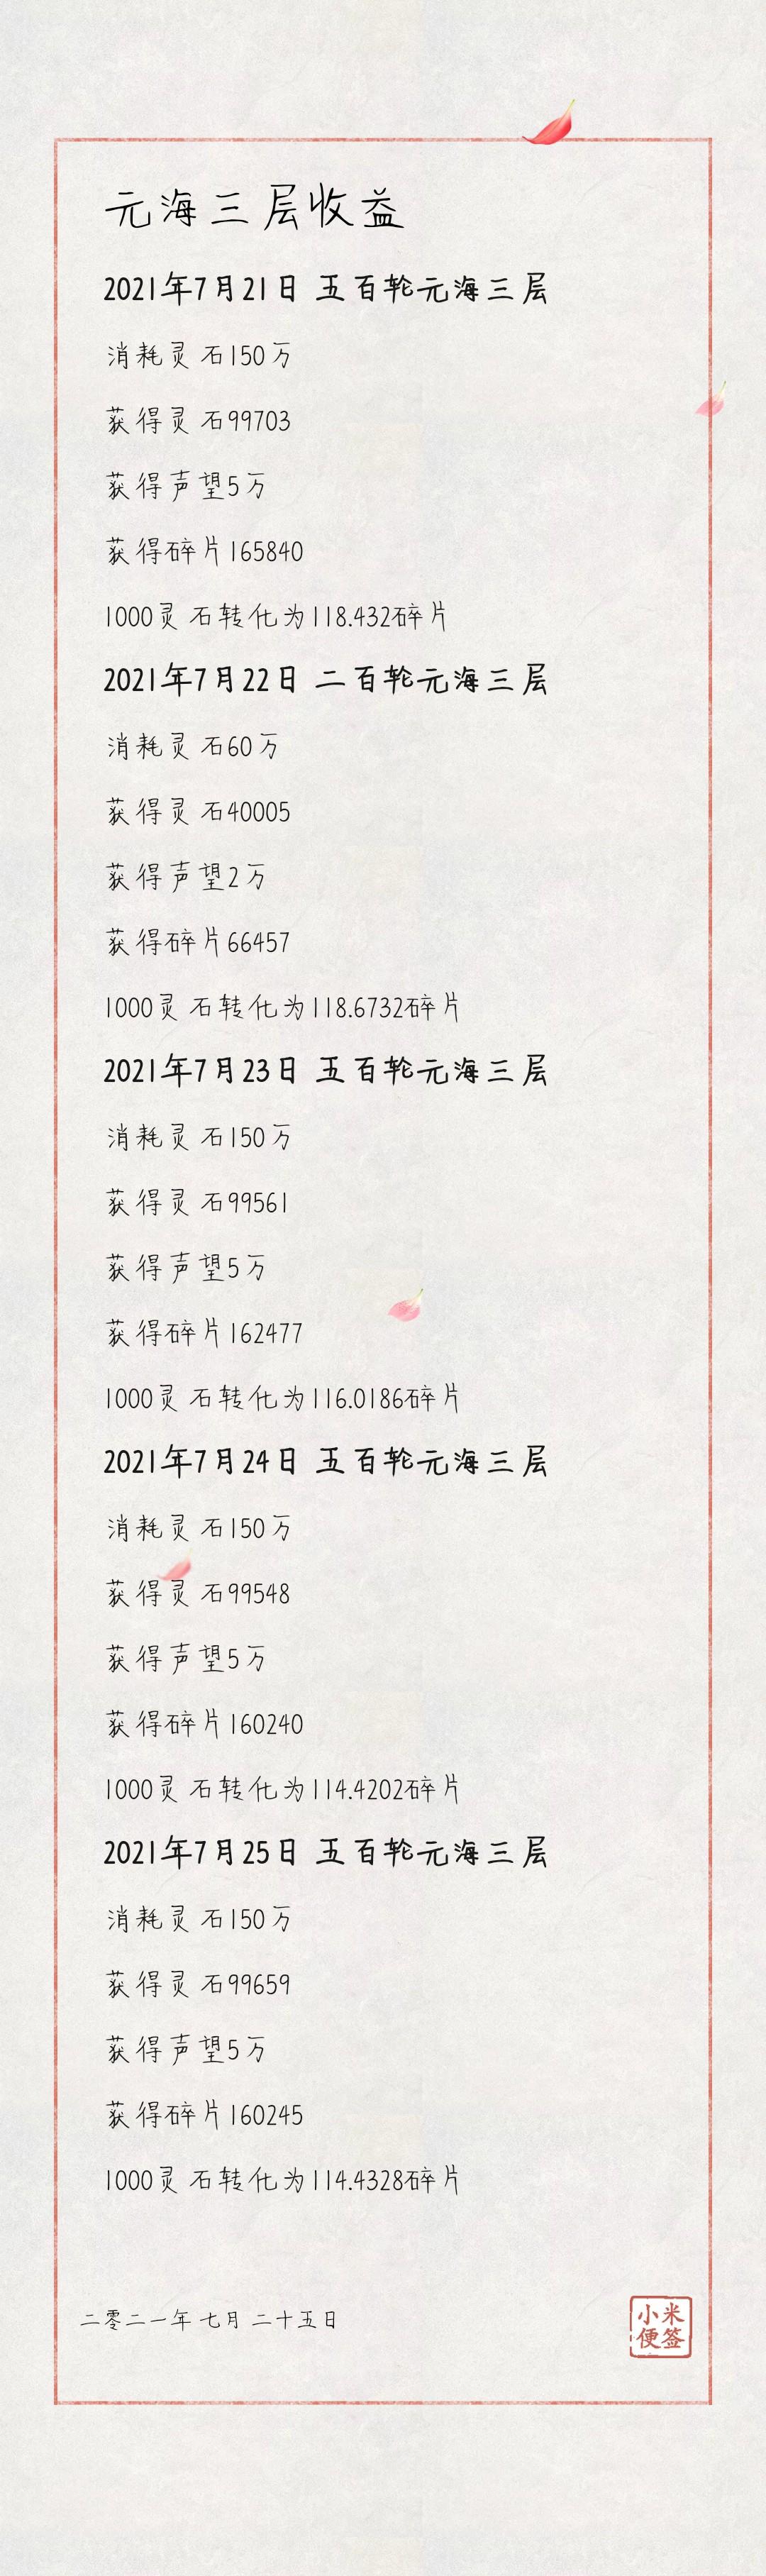 元海三层收益
2021年7月21日 五百轮元海三层
消耗灵石150万
获得灵石99703
获得声望5万
获得碎片165840
1000灵石转化为118.432碎片
2021年7月22日 二百轮元海三层
消耗灵石60万
获得灵石40005
获得声望2万
获得碎片66457
1000灵石转化为118.6732碎片
2021年7月23日 五百轮元海三层
消耗灵石150万
获得灵石99561
获得声望5万
获得碎片162477
1000灵石转化为116.0186碎片
2021年7月24日 五百轮元海三层
消耗灵石150万
获得灵石99548
获得声望5万
获得碎片160240
1000灵石转化为114.4202碎片
2021年7月25日 五百轮元海三层
消耗灵石150万
获得灵石99659
获得声望5万
获得碎片160245
1000灵石转化为114.4328碎片
二零二一年 七月 二十五日
小米
便签